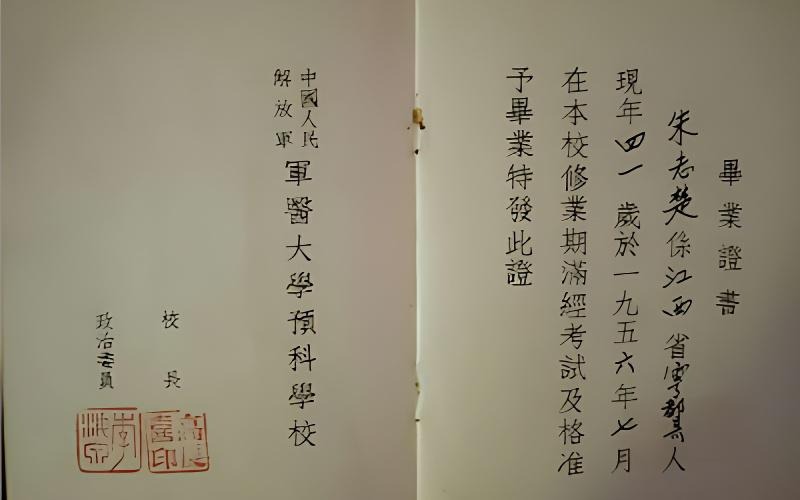 畢業證書
朱志楚係江西省雩都縣人
現年四一歲於一九五六年七月
在本校修業期滿經考試及格准
予畢業特發此證
中國人民
解放軍
軍醫大學預科學校
校長
政治委員